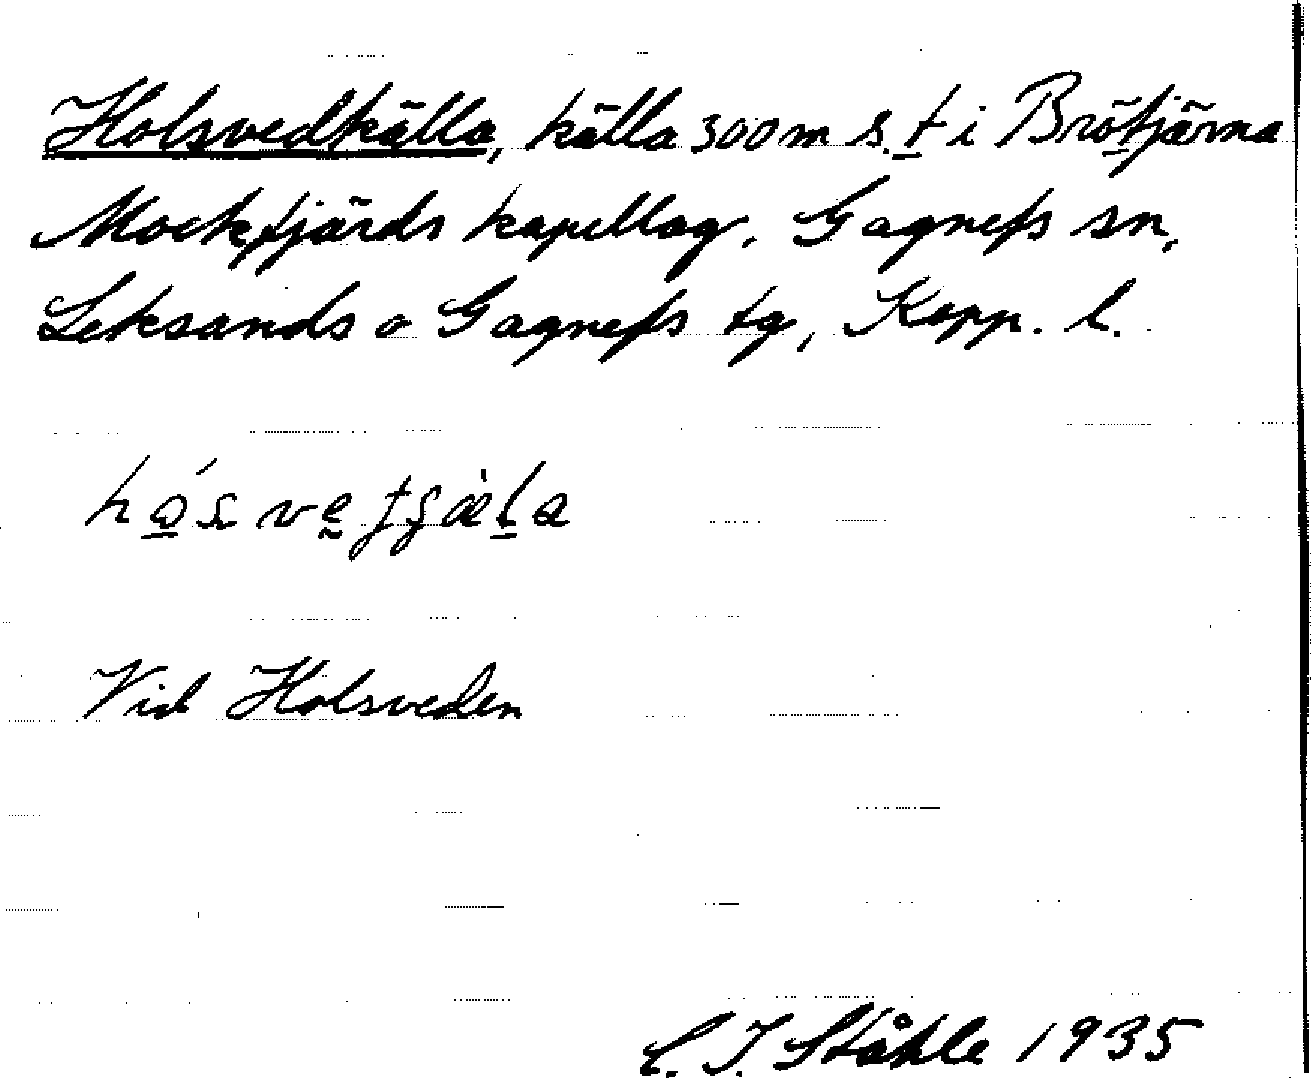 Holsvedkälla, källa 300 m s. t i Brötjärna
Mockfjärds kapellag. Gagnefs sn,
Leksands o Gagnefs tg, Kopp. l.
Vid Holsveden
C. I. Ståhle 1935